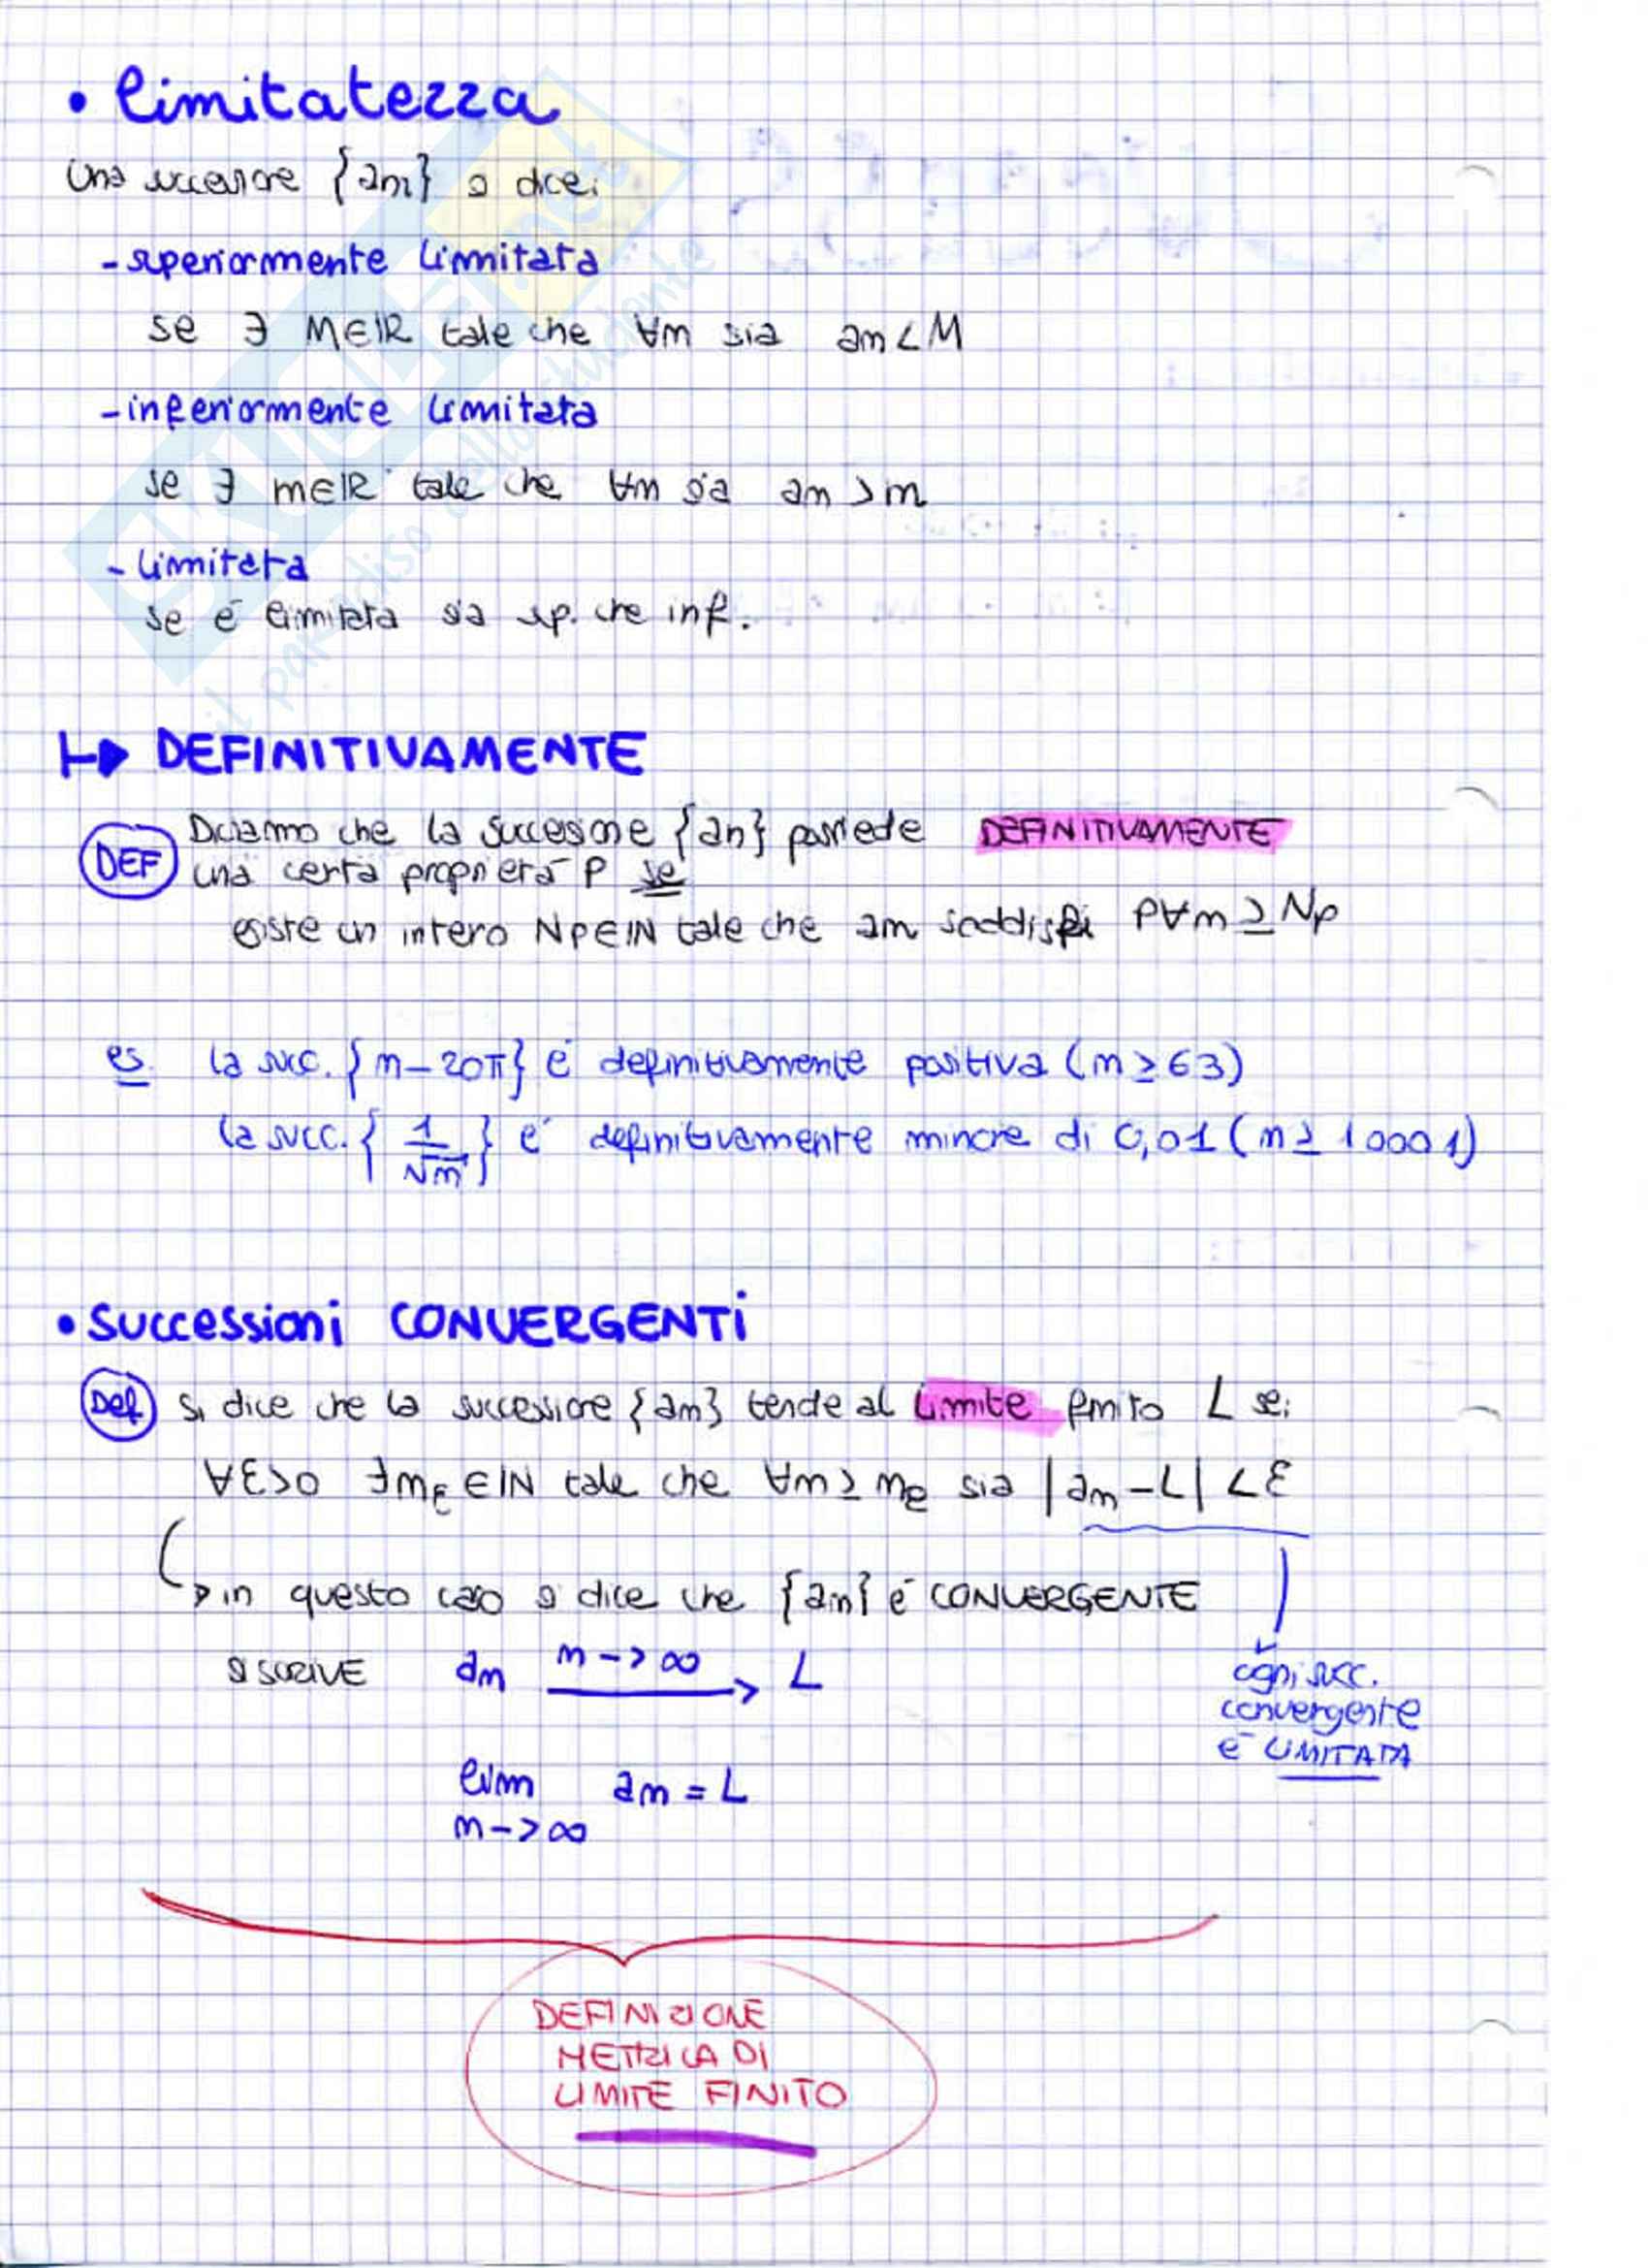 • limitatezza
Una successione {an} si dice:
- superiormente limitata
se ∃ M∈ℝ tale che ∀n sia an < M
- inferiormente limitata
se ∃ m∈ℝ tale che ∀n sia an > m
- limitata
se é limitata sia sup. che inf.
DEFINITIVAMENTE
DEF Diciamo che la successione {an} possiede DEFINITIVAMENTE
una certa proprietá P se
esiste un intero Np∈ℕ tale che an soddisfi P ∀n ≥ Np
es. la succ. {n-20π} é definitivamente positiva (n ≥ 63)
la succ. {1/√n} é definitivamente minore di 0,01 (n ≥ 10001)
• successioni CONVERGENTi
Def Si dice che la successione {an} tende al limite finito L se:
∀ε>0 ∃nε∈ℕ tale che ∀n ≥ nε sia |an-L| < ε
in questo caso si dice che {an} é CONVERGENTE
SI SCRIVE an n->∞ L
ogni succ.
convergente
é LIMITATA
lim an = L
n->∞
DEFINIZIONE
METRICA DI
LIMITE FINITO
SKUOLA.net
il paradiso dello studente